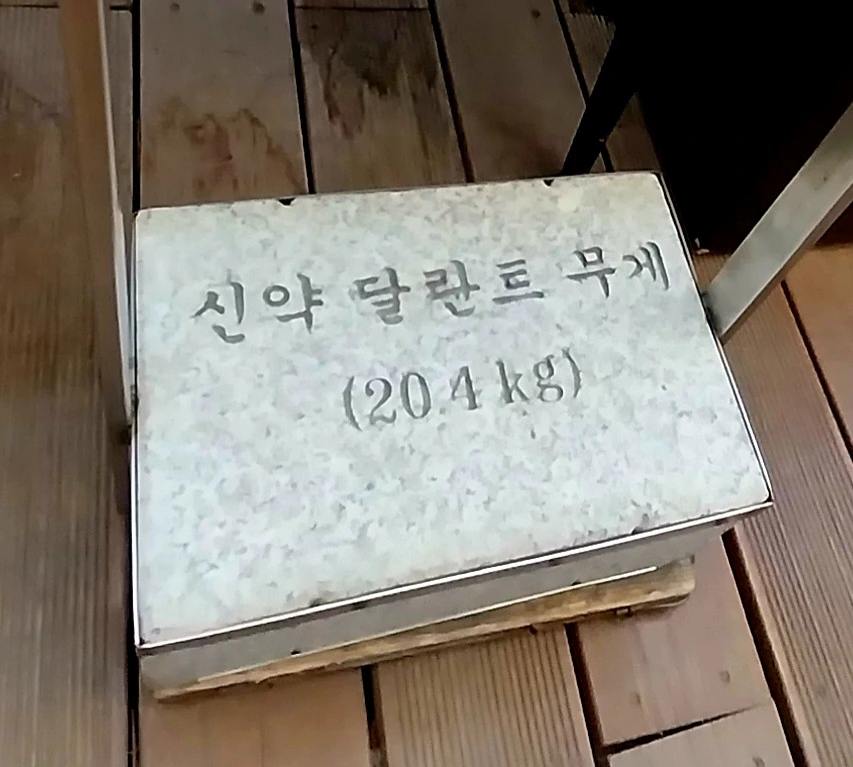 신약 달란트 무게
(20.4kg)